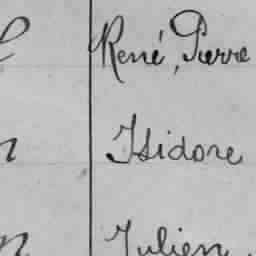 René, Pierre
Isidore
Julien